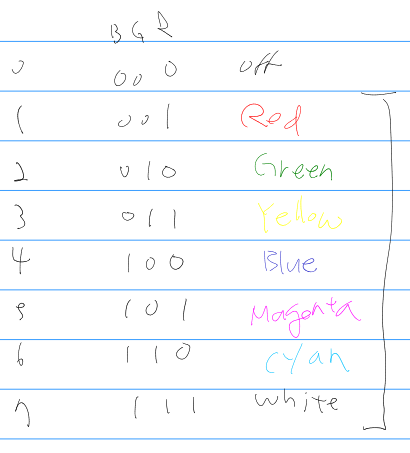 B G R
0 0 0 0 off
1 0 0 1 Red
2 0 1 0 Green
3 0 1 1 Yellow
4 1 0 0 Blue
5 1 0 1 Magenta
6 1 1 0 Cyan
7 1 1 1 White